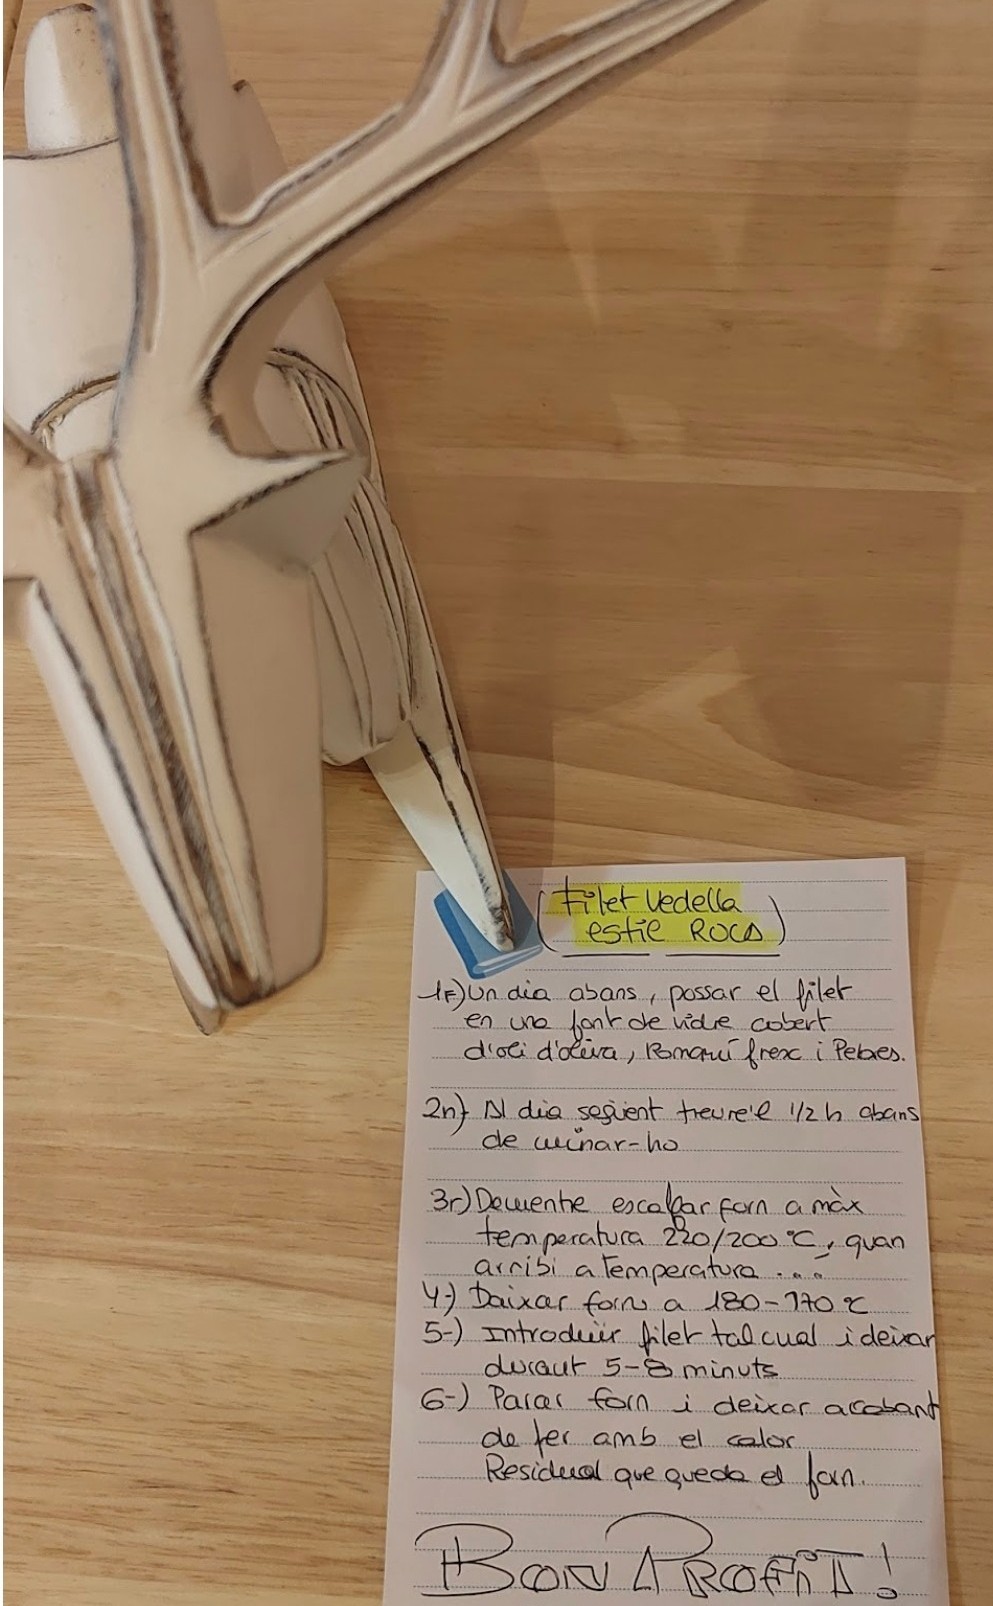 (Filet Vedella
estil ROCA)
1r) Un dia abans, possar el filet
en una font de vidre cobert
d'oli d'oliva, Romaní frexc i Pebres.
2n) Al dia següent treure'l 1/2 h abans
de cuinar-ho
3r) Demente escalfar forn a màx
temperatura 220/200 °C, quan
arribi a temperatura ...
4-) Daixar forn a 180-170 °C
5-) Introduïr filet tal cual i deixar
durant 5-8 minuts
6-) Parar forn i deixar acabant
de fer amb el calor
Residual que queda el forn.
BON PROFIT!